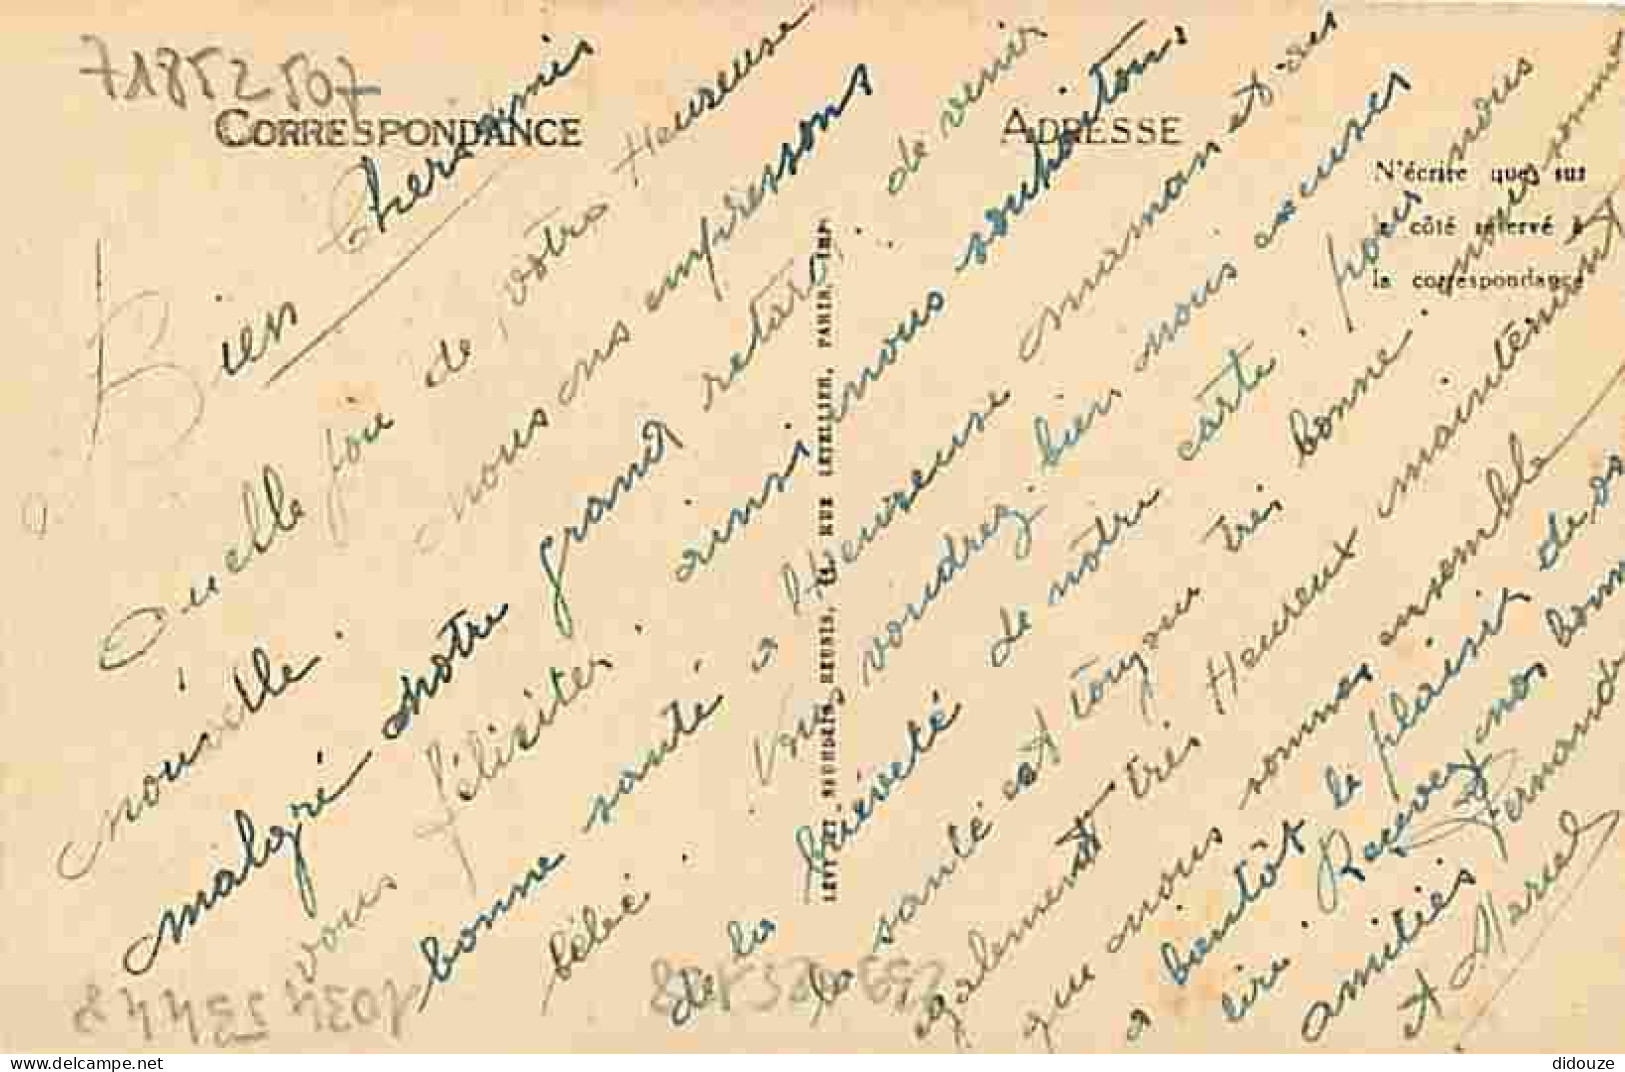 71852507
CORRESPONDANCE
ADRESSE
N'écrire que sur
le côté réservé à
la correspondance
LEVY ET NEURDEIN REUNIS, 44, RUE LETELLIER, PARIS, IMP.
Bien Chers amis
Quelle joie de votre Heureuse
nouvelle. nous ns enpressons
malgré notre grand retard, de venir
vous féliciter. ainsi nous souhaitons
bonne santé a Heureuse maman et ses
bébé. Vous voudrez bien nous excuser
de la brièveté de notre carte. pour nous
la santé est toujou très bonne. nous somme
egalement très Heureux maintenant
que nous sommes ensemble
a bientôt le plaisir de vs
lire. Recevez nos bonn
amitiés Fernande
et Marcel